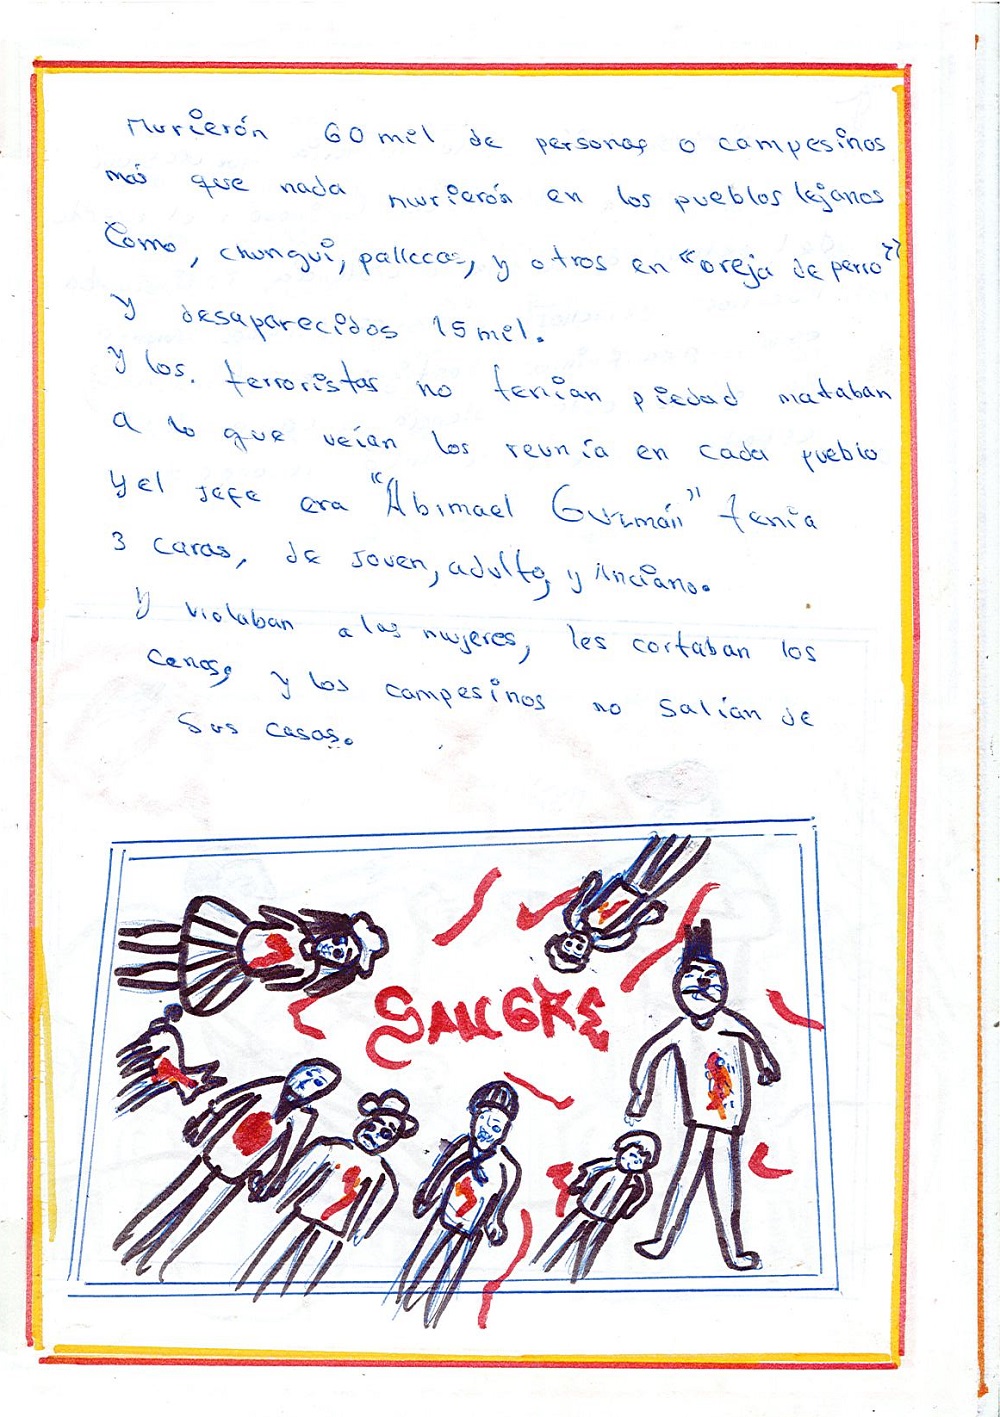 Murierón 60 mil de personas o campesinos
más que nada murierón en los pueblos lejanos
Como, chungui, pallccas, y otros en "oreja de perro"
y desaparecidos 15 mil.
y los. terroristas no tenían piedad mataban
a lo que veían los reunía en cada pueblo
y el jefe era "Abimael Guzmán" tenia
3 caras, de joven, adulto, y Anciano.
y violaban a las mujeres, les cortaban los
cenos, y los campesinos no salían de
sus casas.
SANGRE